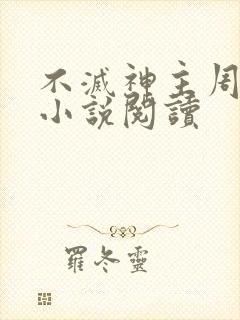 不滅神主周
小說閱讀
羅冬靈